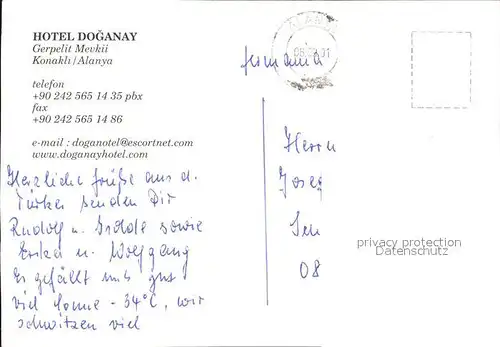 HOTEL DOĞANAY
Gerpelit Mevkii
Konaklı/Alanya
telefon
+90 242 565 14 35 pbx
fax
+90 242 565 14 86
e-mail : doganotel@escortnet.com
www.doganayhotel.com
Herzliche Grüße aus d.
Türkei senden Dir
Rudolf u. sowie
Erika u. Wolfgang
Es gefällt uns gut
viel Sonne - 34°C, wir
schwitzen viel
ALANYA
Germania
Herrn
Josef
Sen
08
privacy protection
Datenschutz